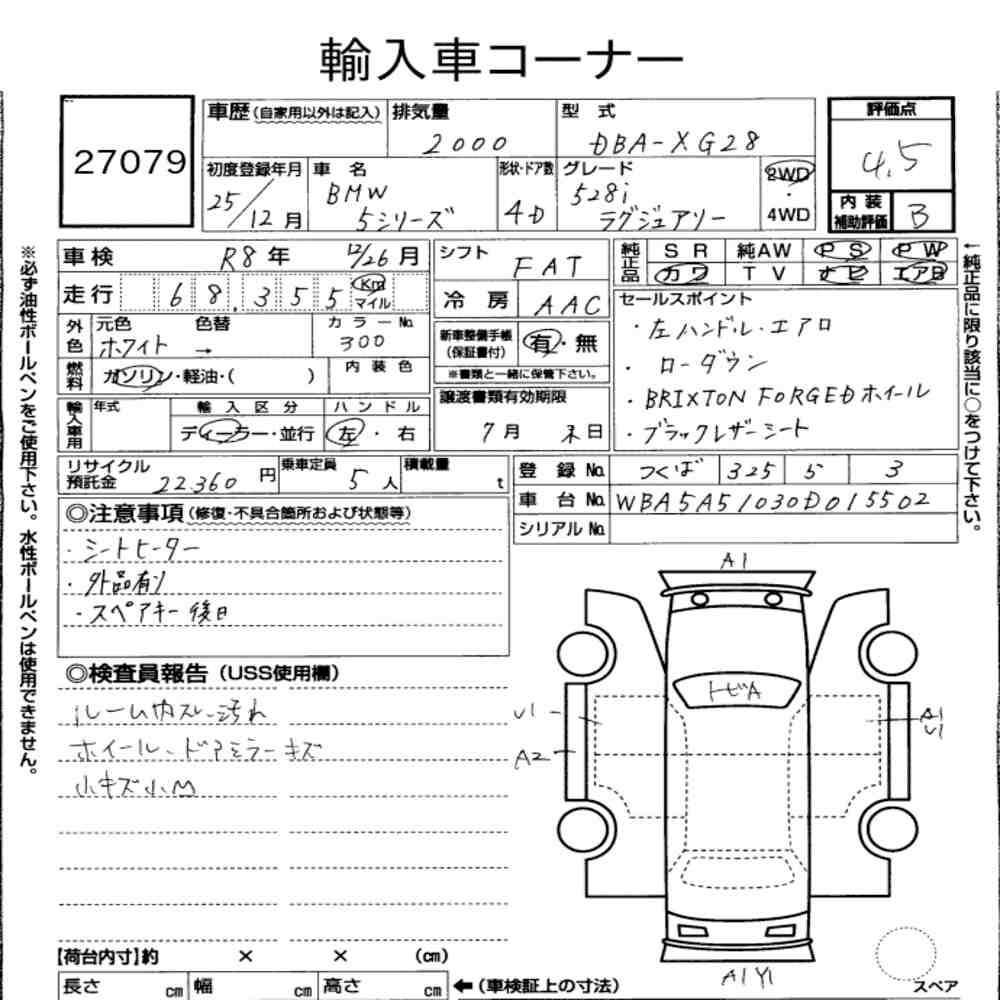 輸入車コーナー
27079
車歴(自家用以外は記入) 排気量 2000 型式 DBA-XG28
評価点 4.5
内装補助評価 B
初度登録年月 25/12月 車名 BMW 5シリーズ 形状・ドア数 4D グレード 528i ラグジュアリー 2WD・4WD
車検 R8年 12/26月 シフト FAT
純正品 SR 純AW PS PW
カワ TV ナビ エアB
走行 68,355 Km マイル
冷房 AAC
セールスポイント
・左ハンドル・エアロ
・ローダウン
・BRIXTON FORGEDホイール
・ブラックレザーシート
外色 元色 ホワイト 色替 → カラーNo. 300
新車整備手帳(保証書付) 有・無
※書類と一緒に保管下さい。
燃料 ガソリン・軽油・( ) 内装色
譲渡書類有効期限 7月末日
輸入車用 年式 輸入区分 ディーラー・並行 ハンドル 左・右
リサイクル預託金 22360円 乗車定員 5人 積載量 t
登録No. つくば 325 5 3
車台No. WBA5A51030D015502
シリアルNo.
◎注意事項(修復・不具合箇所および状態等)
・シートヒーター
・外品有り
・スペアキー後日
◎検査員報告(USS使用欄)
ルーム内スレ・汚れ
ホイール・ドアミラーキズ
小キズ小凹
A1
トビA
U1
A2
A1
U1
A1 Y1
スペア
【荷台内寸】約 × × (cm)
長さ cm 幅 cm 高さ cm ←(車検証上の寸法)
※必ず油性ボールペンをご使用下さい。水性ボールペンは使用できません。
←純正品に限り該当に○をつけて下さい。